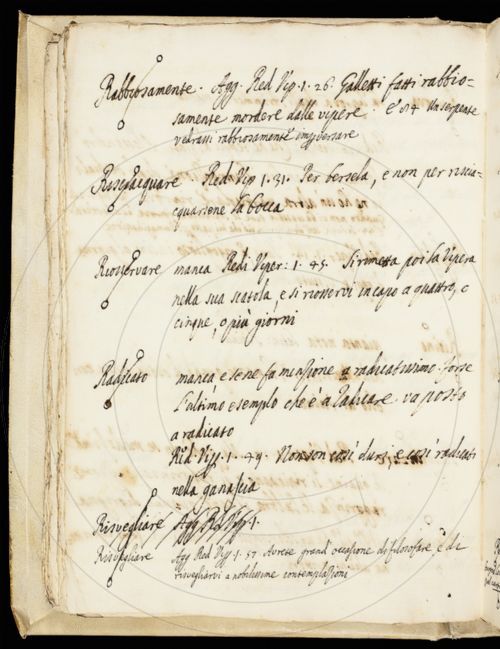 Rabbiosamente. Agg. Red Vip. 1. 26. Galletti fatti rabbio-
samente mordere dalle vipere. E 84 Un serpente
vedrassi rabbiosamente imperversare
Risciacquare. Red. Vip 1. 31. Per bersela, e non per riscia-
cquarsene la bocca
Riosservare manca Redi Viper: 1. 45. Si rimetta poi la Vipera
nella sua scatola, e si riosservi in capo a quattro, o
cinque, o più giorni
Radicato manca e se ne fa menzione a radicatissimo. forse
L'ultimo esemplo che è a Radicare va posto
a radicato
Red. Vip. 1. 49. Non son così duri, e così radicati
nella ganascia
Risvegliare Agg Red Vip. 1.
Risvegliare Agg Red Vip. 1. 57 Avrete grand' occasione di filosofare e di
risvegliarvi a nobilissime contemplazioni